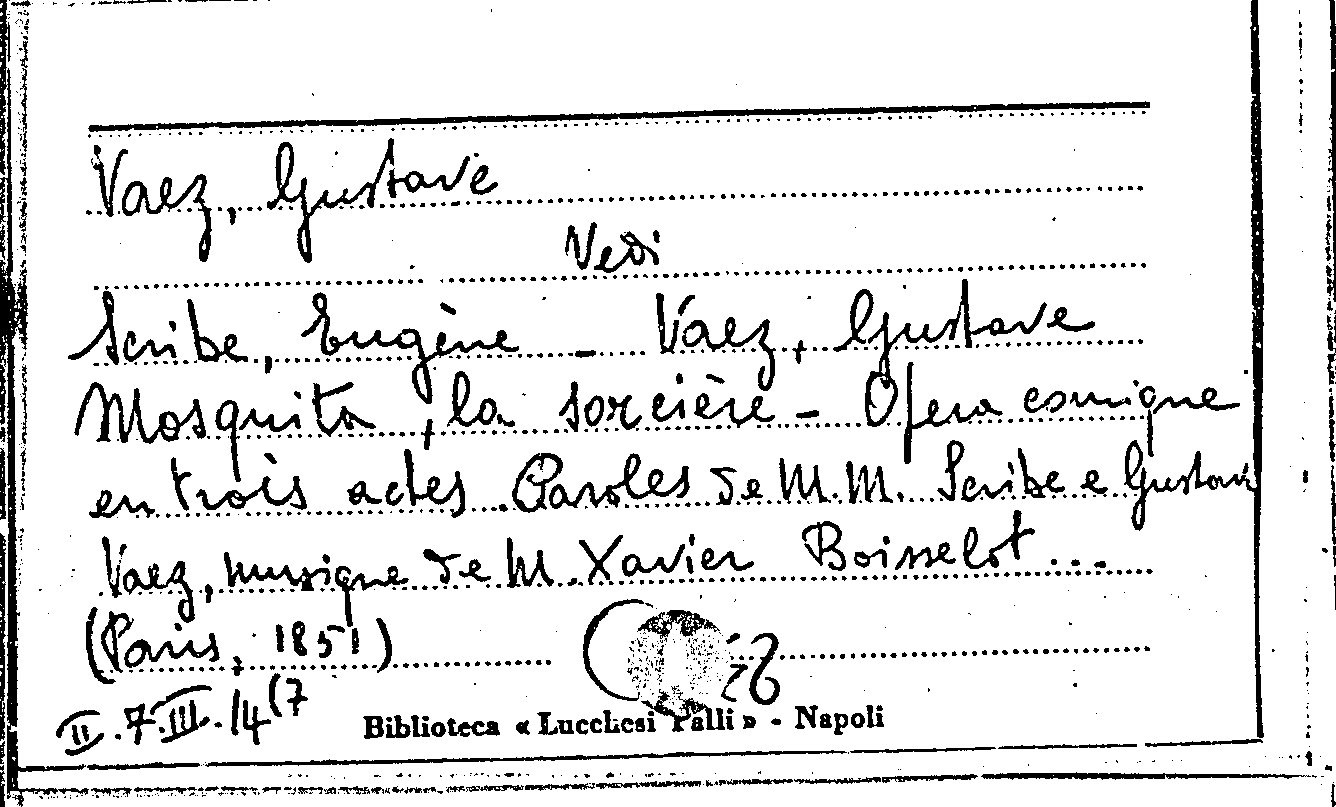 Vaez, Gustave
Vedi
Scribe, Eugène - Vaez, Gustave
Mosquita, la sorcière - Opera comique
en trois actes. Paroles de M.M. Scribe e Gustave
Vaez, musique de M. Xavier Boisselot...
(Paris, 1851)
II.7.III.14(7
Biblioteca « Lucchesi Palli » - Napoli